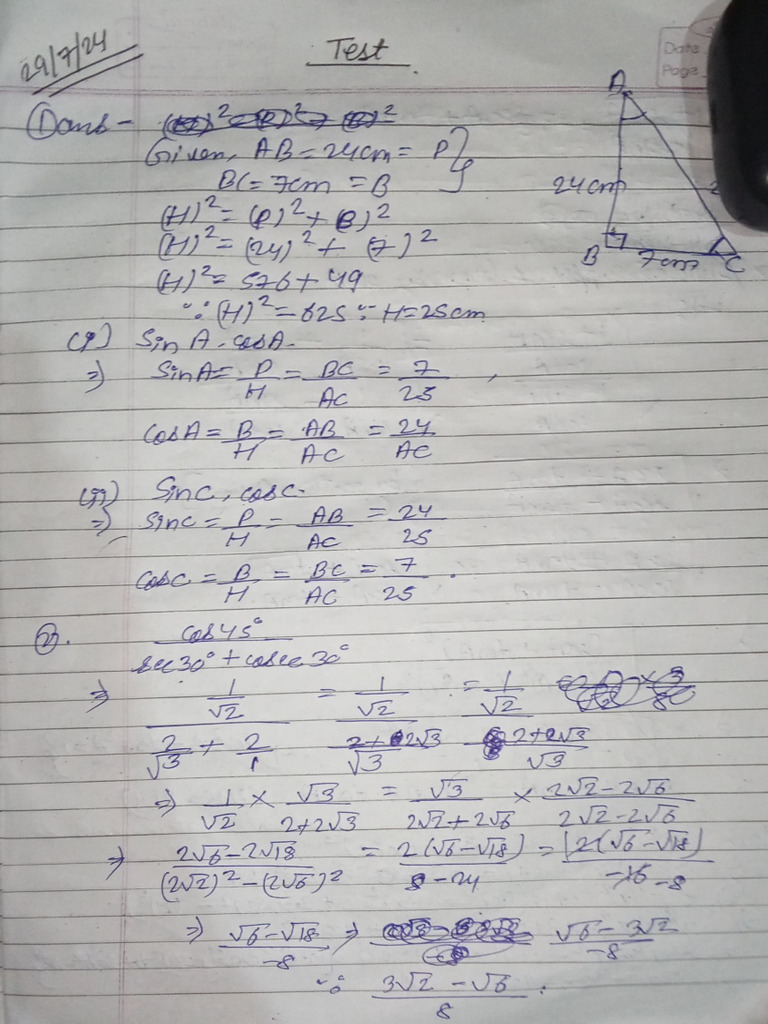 29/7/24
Test
Date
Page
A
① ans -
Given, AB = 24cm = P }
BC = 7cm = B
24cm
B
7cm
C
(H)² = (P)² + (B)²
(H)² = (24)² + (7)²
(H)² = 576 + 49
∵ (H)² = 625 ∵ H = 25cm
(i) Sin A, cos A.
⇒ Sin A = P/H = BC/AC = 7/25,
cos A = B/H = AB/AC = 24/AC
(ii) Sin C, cos C.
⇒ Sin C = P/H = AB/AC = 24/25
cos C = B/H = BC/AC = 7/25.
②. cos45° / sec30° + cosec30°
⇒ (1/√2) / (2/√3 + 2/1) = (1/√2) / (2+2√3/√3) = (1/√2) / (2+2√3/√3)
⇒ 1/√2 × √3/2+2√3 = √3/2√2+2√6 × 2√2-2√6/2√2-2√6
⇒ 2√6-2√18/(2√2)²-(2√6)² = 2(√6-√18)/8-24 = 2(√6-√18)/-16 -8
⇒ √6-√18/-8 ⇒ √6-3√2/-8
∵ 3√2-√6/8.